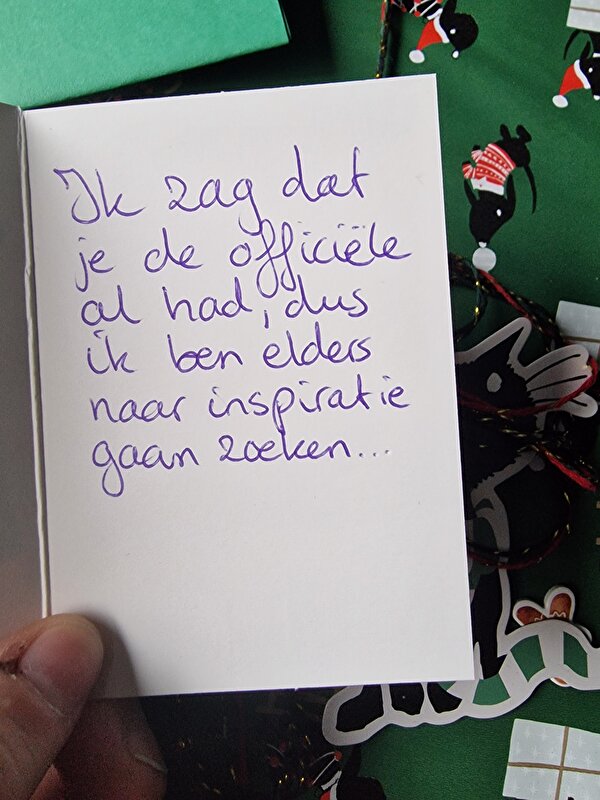 Ik zag dat
je de officiële
al had, dus
ik ben elders
naar inspiratie
gaan zoeken...